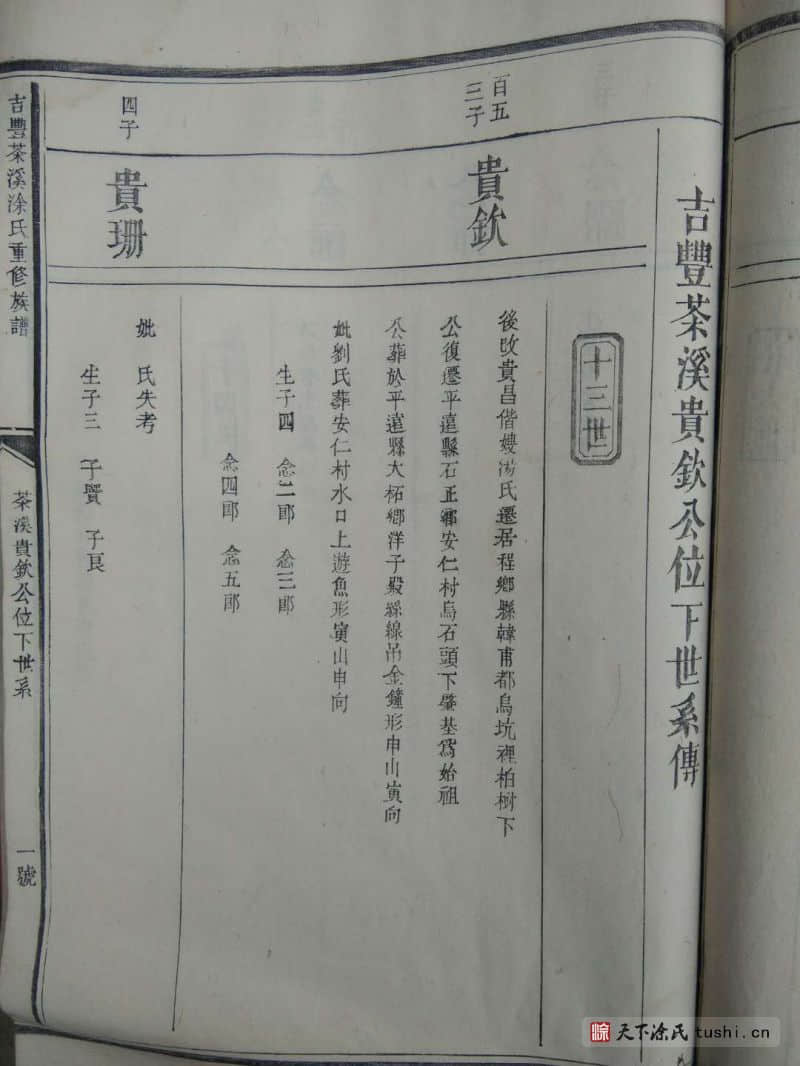 吉豐茶溪貴欽公位下世系傳
十三世
百五
三子
貴欽
後改貴昌偕嫂湯氏遷居程鄉縣韓甫都烏坑裡柏樹下
公復遷平遠縣石正鄉安仁村烏石頭下肇基為始祖
公葬於平遠縣大柘鄉洋子殿綠線吊金鐘形申山寅向
妣劉氏葬安仁村水口上遊魚形寅山申向
生子四 念二郎 念三郎
念四郎 念五郎
四子
貴珊
妣 氏失考
生子三 子賢 子良
吉豐茶溪涂氏重修族譜
茶溪貴欽公位下世系
一號
天下涂氏 tushi.cn